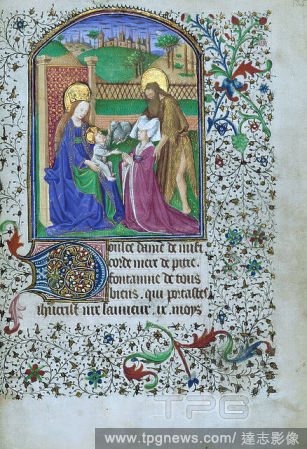 Doulce dame de miſeri
corde mere de pitie.
fontainne de tous
biens. qui portaſtes
ihucriſt nre
TPG
www.tpgnews.com/達志影像